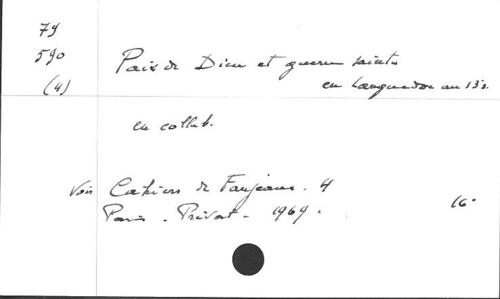 79
590
(4)
Paix de Dieu et guerre sainte
en Languedoc au 13e s.
en collab.
Voir Cahiers de Fanjeaux. 4
Paris - Privat - 1969.
16.